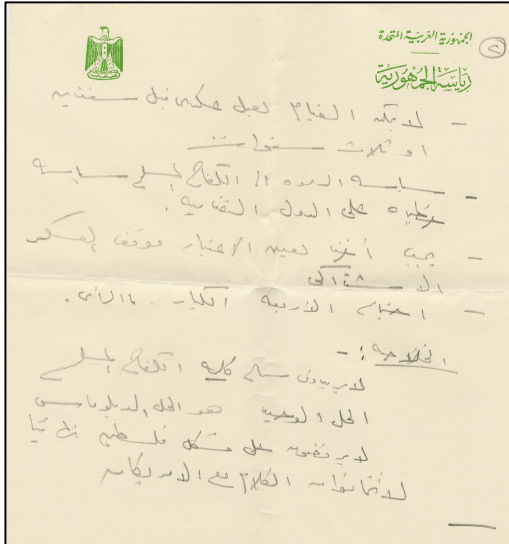 الجمهورية العربية المتحدة
رياسة الجمهورية
٢
- لا يمكن القيام بعمل عسكرى قبل سنتين
او ثلاث سنوات
- سياسة الدعوة الى الكفاح المسلح سياسة
على الدول التقدمية.
- يجب أخذنا بعين الاعتبار موقف المعسكر
الاشتراكى
- اجتماع الأربعة الكبار. ما الرأى.
الخلاصة :-
لا يريدون كلية الكفاح المسلح
الحل الوحيد هو الحل الدبلوماسى
لا يرفضون حل مشكل فلسطين نهائيا
الكلام مع الامريكان